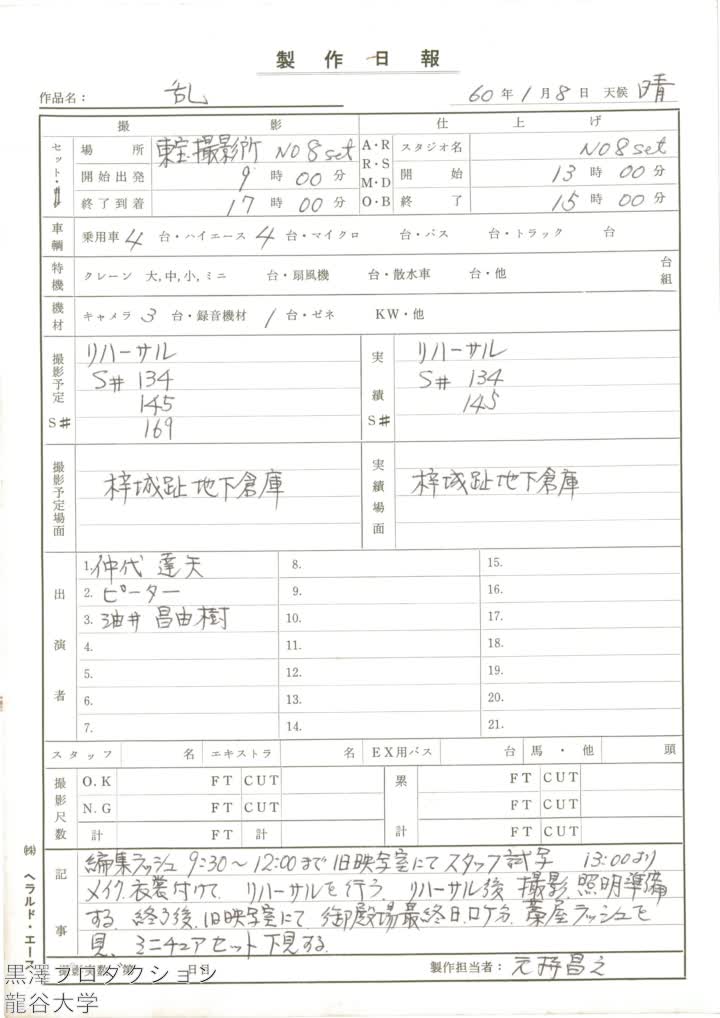 製作日報
作品名: 乱 60年1月8日 天候 晴
撮影 仕上げ
セット・ 場所 東宝撮影所 NO8set A・R スタジオ名 NO8set
開始出発 9時00分 R・S M・D 開始 13時00分
終了到着 17時00分 O・B 終了 15時00分
車輌 乗用車4台・ハイエース4台・マイクロ 台・バス 台・トラック 台
特機 クレーン 大,中,小,ミニ 台・扇風機 台・散水車 台・他 台組
機材 キャメラ3台・録音機材1台・ゼネ KW・他
撮影予定S# リハーサル 実績S# リハーサル
S#134 S#134
145 145
169
撮影予定場面 梓城趾地下倉庫 実績場面 梓城趾地下倉庫
出演者
1. 仲代達矢 8. 15.
2. ピーター 9. 16.
3. 油井昌由樹 10. 17.
4. 11. 18.
5. 12. 19.
6. 13. 20.
7. 14. 21.
スタッフ 名 エキストラ 名 EX用バス 台 馬・他 頭
撮影尺数 O.K FT CUT 累計 FT CUT
N.G FT CUT FT CUT
計 FT 計 FT CUT
記事
編集ラッシュ9:30〜12:00まで旧映写室にてスタッフ試写 13:00より
メイク、衣裳付けて、リハーサルを行う、リハーサル後 撮影 照明準備
する。終了後、旧映写室にて 御殿場最終日、ロケ分、藁屋ラッシュを
見、ミニチュアセット下見する。
製作担当者:
㈱ ヘラルド・エース
黒澤プロダクション
龍谷大学